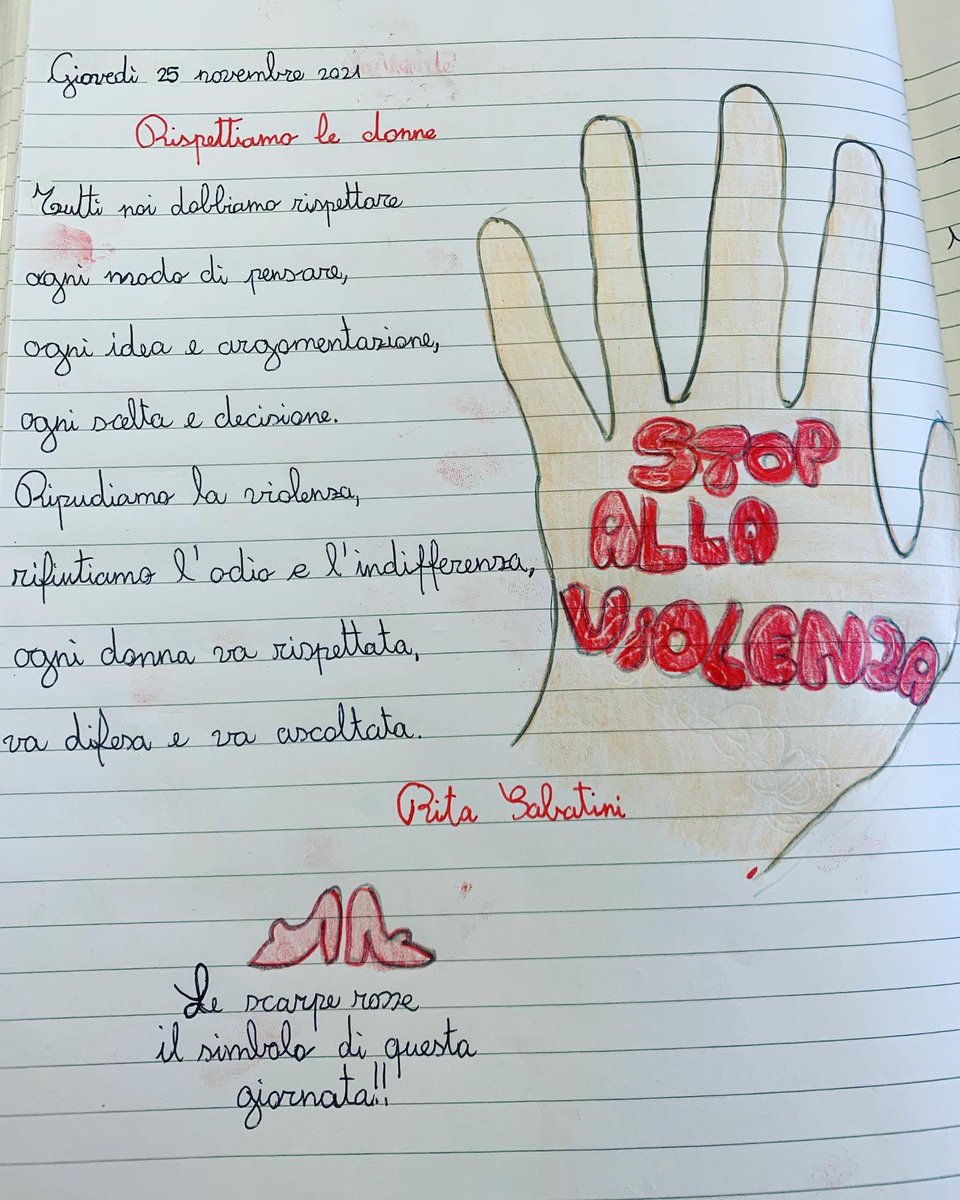 Giovedì 25 novembre 2021
Rispettiamo le donne
Tutti noi dobbiamo rispettare
ogni modo di pensare,
ogni idea e argomentazione,
ogni scelta e decisione.
Ripudiamo la violenza,
rifiutiamo l'odio e l'indifferenza,
ogni donna va rispettata,
va difesa e va ascoltata.
Rita Sabatini
STOP
ALLA
VIOLENZA
Le scarpe rosse
il simbolo di questa
giornata!!